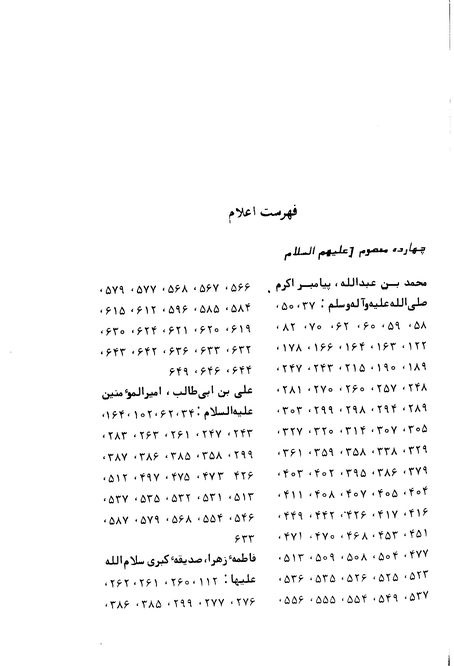 فهرست اعلام
چهارده معصوم [علیهم السلام
محمد بن عبدالله، پیامبر اکرم
صلی‌الله‌علیه‌وآله‌وسلم : ۳۷، ۵۰،
۵۸، ۵۹، ۶۰، ۶۲، ۷۰، ۸۲،
۱۲۲، ۱۶۳، ۱۶۴، ۱۶۶، ۱۷۸،
۱۸۹، ۱۹۰، ۲۱۵، ۲۴۳، ۲۴۷،
۲۴۸، ۲۵۷، ۲۶۰، ۲۷۰، ۲۸۱،
۲۸۹، ۲۹۴، ۲۹۸، ۲۹۹، ۳۰۳،
۳۰۵، ۳۰۷، ۳۱۴، ۳۲۰، ۳۲۷،
۳۲۹، ۳۳۸، ۳۵۸، ۳۵۹، ۳۶۱،
۳۷۹، ۳۸۶، ۳۹۵، ۴۰۲، ۴۰۳،
۴۰۴، ۴۰۵، ۴۰۷، ۴۰۸، ۴۱۱،
۴۱۶، ۴۱۷، ۴۲۶، ۴۴۲، ۴۴۹،
۴۵۱، ۴۵۳، ۴۶۸، ۴۷۰، ۴۷۱،
۴۷۷، ۵۰۴، ۵۰۸، ۵۰۹، ۵۱۳،
۵۲۳، ۵۲۵، ۵۲۶، ۵۳۵، ۵۳۶،
۵۳۷، ۵۴۹، ۵۵۴، ۵۵۵، ۵۵۶،
۵۶۶، ۵۶۷، ۵۶۸، ۵۷۷، ۵۷۹،
۵۸۴، ۵۸۵، ۵۹۶، ۶۱۲، ۶۱۵،
۶۱۹، ۶۲۰، ۶۲۱، ۶۲۴، ۶۳۰،
۶۳۲، ۶۳۳، ۶۳۶، ۶۴۲، ۶۴۳،
۶۴۴، ۶۴۶، ۶۴۹
علی بن ابی‌طالب، امیرالموٴمنین
علیه‌السلام : ۳۴، ۶۲، ۱۰۲، ۱۶۴،
۲۴۳، ۲۴۷، ۲۶۱، ۲۶۳، ۲۸۳،
۲۹۹، ۳۵۸، ۳۸۵، ۳۸۶، ۳۸۷،
۴۲۶، ۴۷۳، ۴۷۵، ۴۹۷، ۵۱۲،
۵۱۳، ۵۳۱، ۵۳۲، ۵۳۵، ۵۳۷،
۵۴۶، ۵۵۴، ۵۶۸، ۵۷۹، ۵۸۷،
۶۳۳
فاطمهٴ زهرا، صدیقهٴ کبری سلام‌الله
علیها : ۱۱۲، ۲۶۰، ۲۶۱، ۲۶۲،
۲۷۶، ۲۷۷، ۲۹۹، ۳۸۵، ۳۸۶،